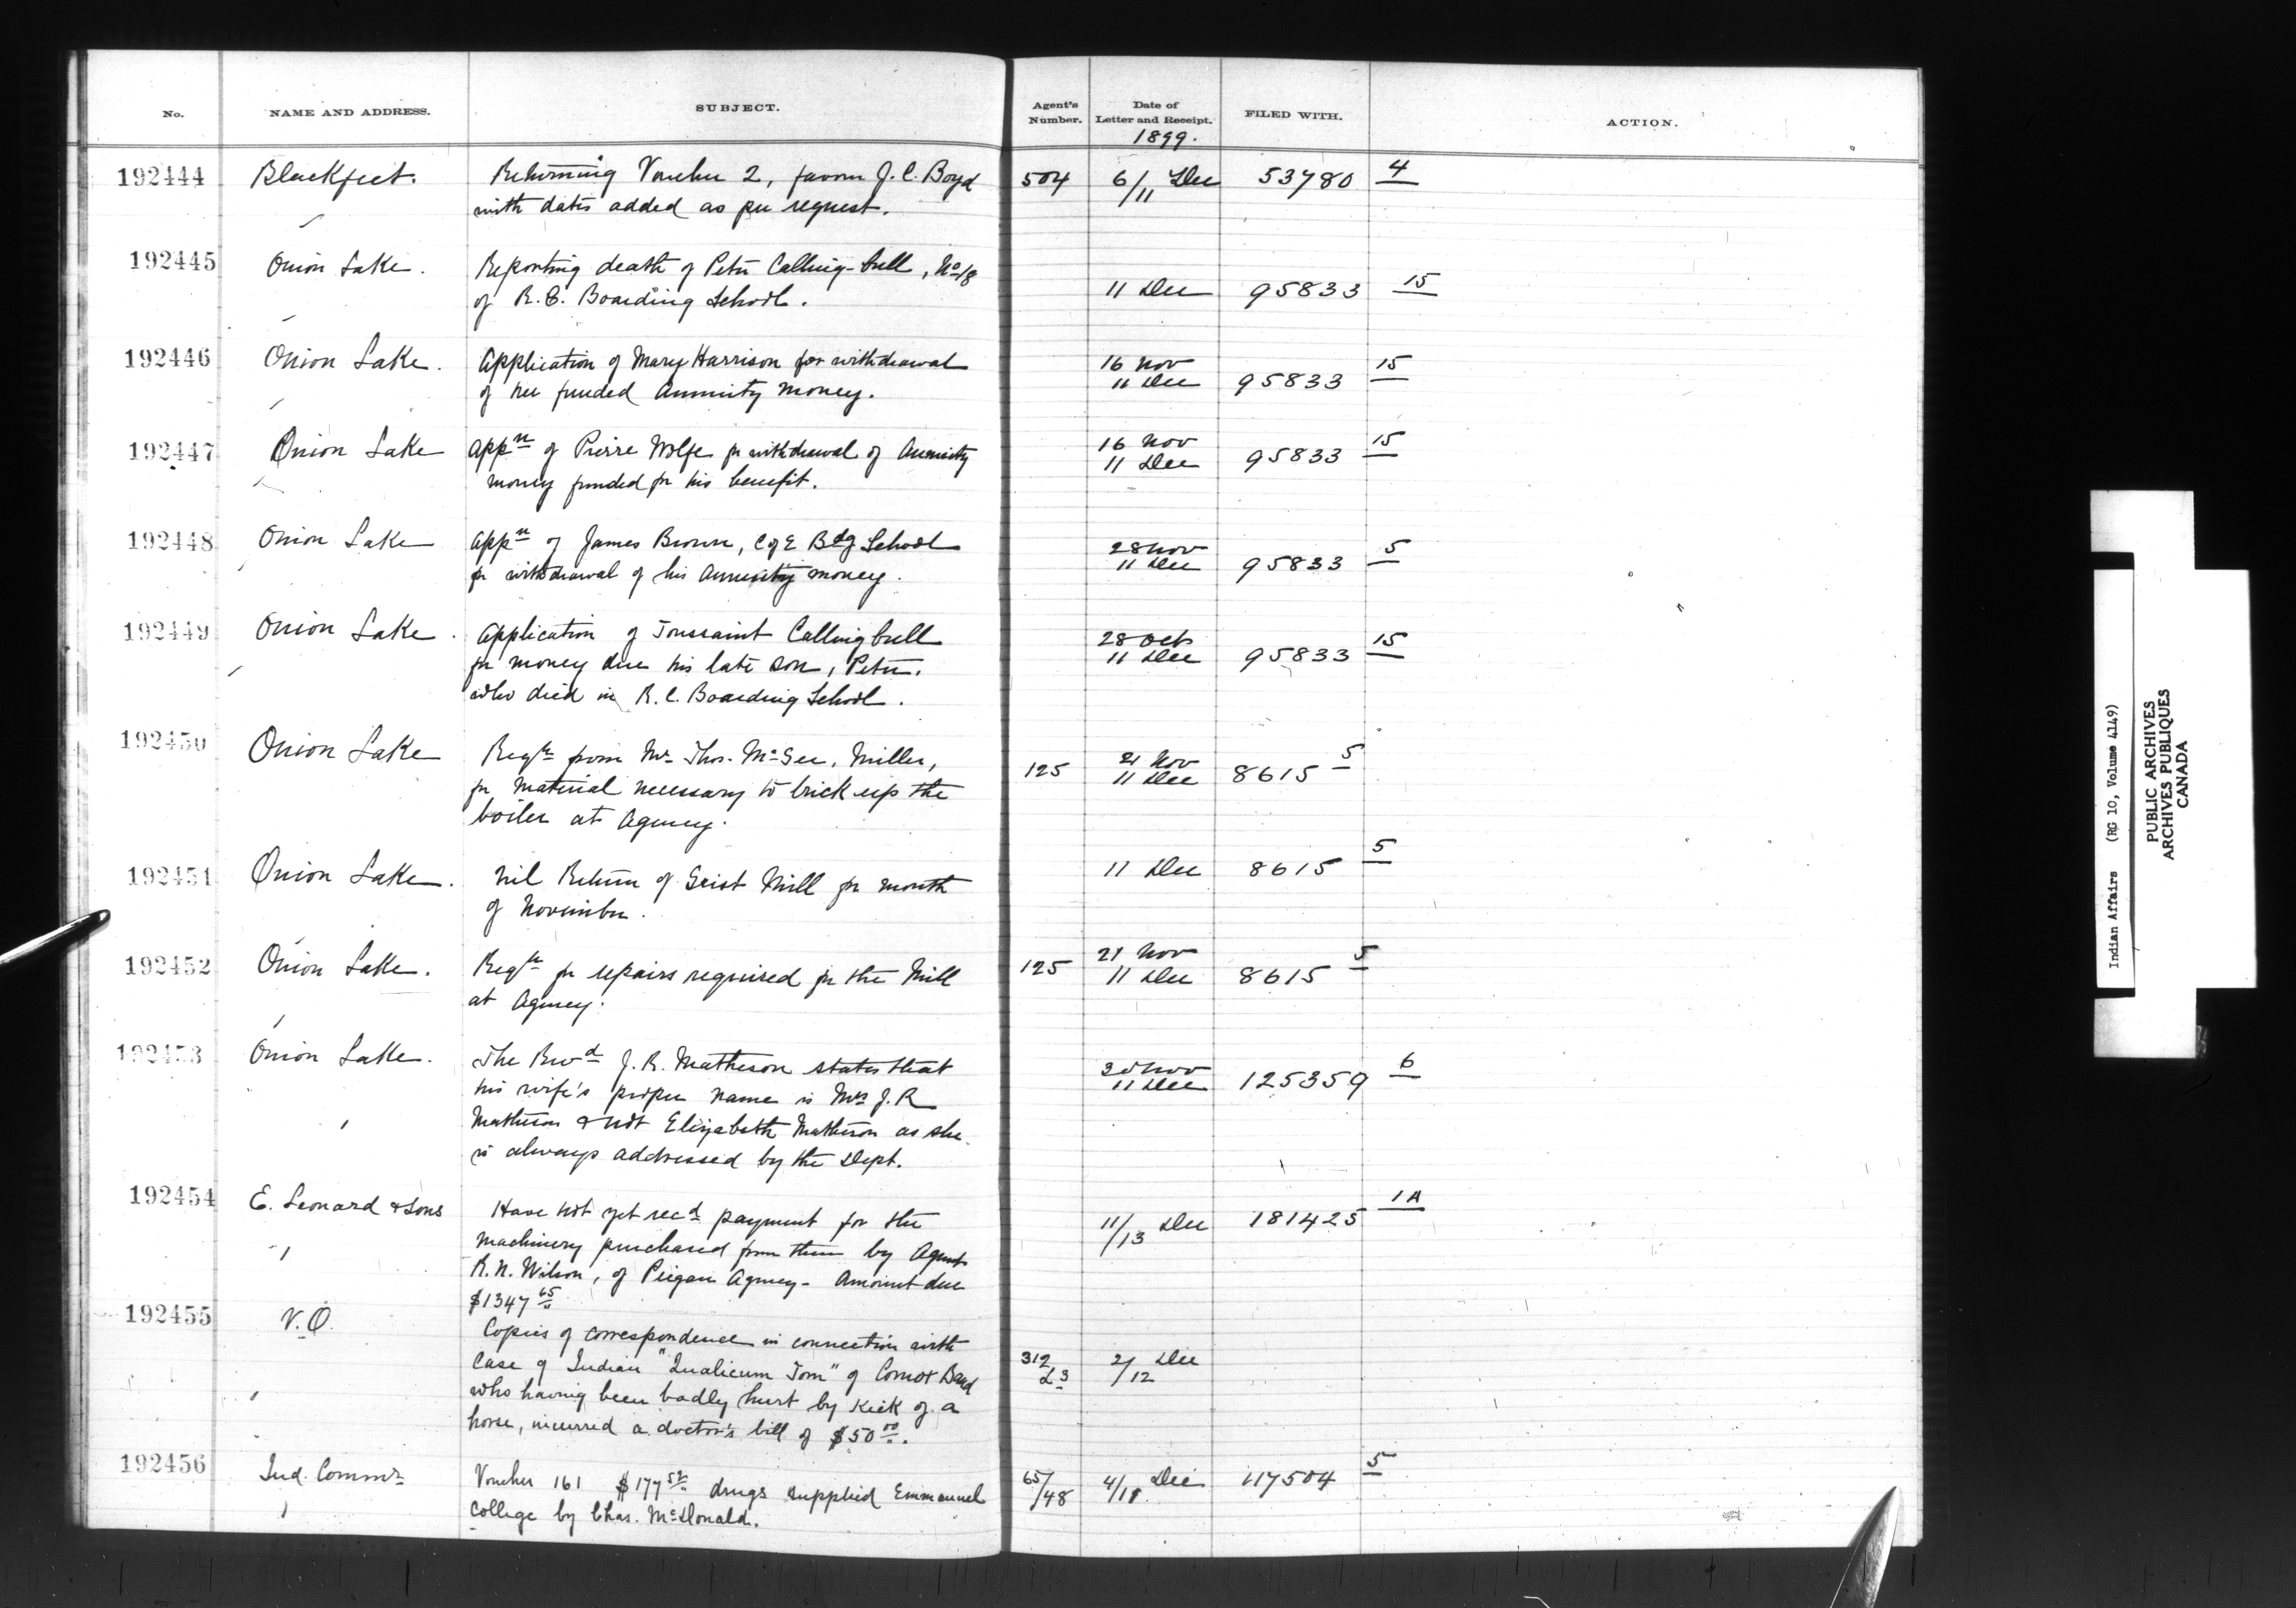 No. NAME AND ADDRESS. SUBJECT. Agent's Number. Date of Letter and Receipt. FILED WITH. ACTION.
1899.
192444 Blackfeet. Returning Voucher 2, favour J. C. Boyd 504 6/11 Dec 53780 4
with dates added as per request.
192445 Onion Lake. Reporting death of Peter Calling-bull, No 18
of R.C. Boarding School. 11 Dec 95833 15
192446 Onion Lake. Application of Mary Harrison for withdrawal 16 Nov 15
of her funded Annuity Money. 11 Dec 95833
192447 Onion Lake Appn of Pierre Wolfe for withdrawal of Annuity 16 Nov 15
money funded for his benefit. 11 Dec 95833
192448 Onion Lake Appn of James Brown, C of E Bdg School 28 Nov 5
for withdrawal of his Annuity money. 11 Dec 95833
192449 Onion Lake. Application of Toussaint Callingbull 28 Oct 15
for money due his late son, Peter. 11 Dec 95833
who died in R.C. Boarding School.
192450 Onion Lake Reqn from Mr Thos. McGee, Miller, 125 21 Nov 5
for Material necessary to brick up the 11 Dec 8615
boiler at Agency.
192451 Onion Lake. Nil Return of Grist Mill for month 11 Dec 8615 5
of November.
192452 Onion Lake. Reqn for repairs required for the Mill 125 21 Nov 5
at Agency. 11 Dec 8615
192453 Onion Lake. The Revd J. R. Matheson states that 30 Nov 6
his wife's proper name is Mrs J. R 11 Dec 125359
Matheson & not Elizabeth Matheson as she
is always addressed by the Dept.
192454 E. Leonard & Sons Have not yet recd payment for the 11/13 Dec 181425 1A
machinery purchased from them by Agent
R. N. Wilson, of Peigan Agency - Amount due
$1347 65
192455 V.O. Copies of correspondence in connection with
Case of Indian "Qualicum Tom" of Comox Band 312 2/12 Dec
who having been badly hurt by Kick of a
horse, incurred a doctor's bill of $50 00.
192456 Ind. Commr Voucher 161 $177 drugs supplied Emmanuel 65/48 4/11 Dec 117504 5
College by Chas. McDonald.
Indian Affairs (RG 10, Volume 4149)
PUBLIC ARCHIVES
ARCHIVES PUBLIQUES
CANADA